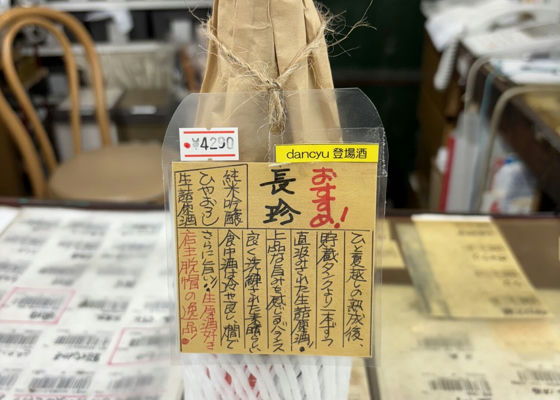 ¥4290
dancyu 登場酒
おすすめ!
長珍
純米吟醸
ひやおろし
生詰原酒
ひと夏越しの熟成後、
貯蔵タンクより一本ずつ
直汲みされた生詰原酒!
上品な旨みを感じバランス
良く洗練された素晴らしい
食中酒は冷や良し、燗で
さらに旨い!生原酒好き
店主脱帽の逸品。